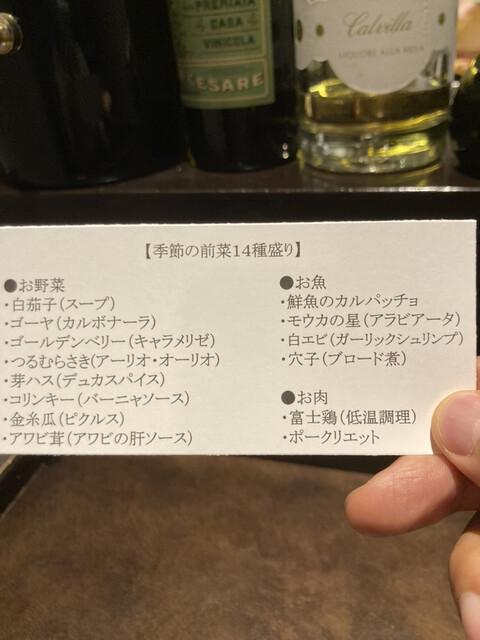 PREMIATA
CASA
VINICOLA
CESARE
Calvilla
LIQUORE ALLA MELA
【季節の前菜14種盛り】
●お野菜
・白茄子(スープ)
・ゴーヤ(カルボナーラ)
・ゴールデンベリー(キャラメリゼ)
・つるむらさき(アーリオ・オーリオ)
・芽ハス(デュカスパイス)
・コリンキー(バーニャソース)
・金糸瓜(ピクルス)
・アワビ茸(アワビの肝ソース)
●お魚
・鮮魚のカルパッチョ
・モウカの星(アラビアータ)
・白エビ(ガーリックシュリンプ)
・穴子(ブロード煮)
●お肉
・富士鶏(低温調理)
・ポークリエット